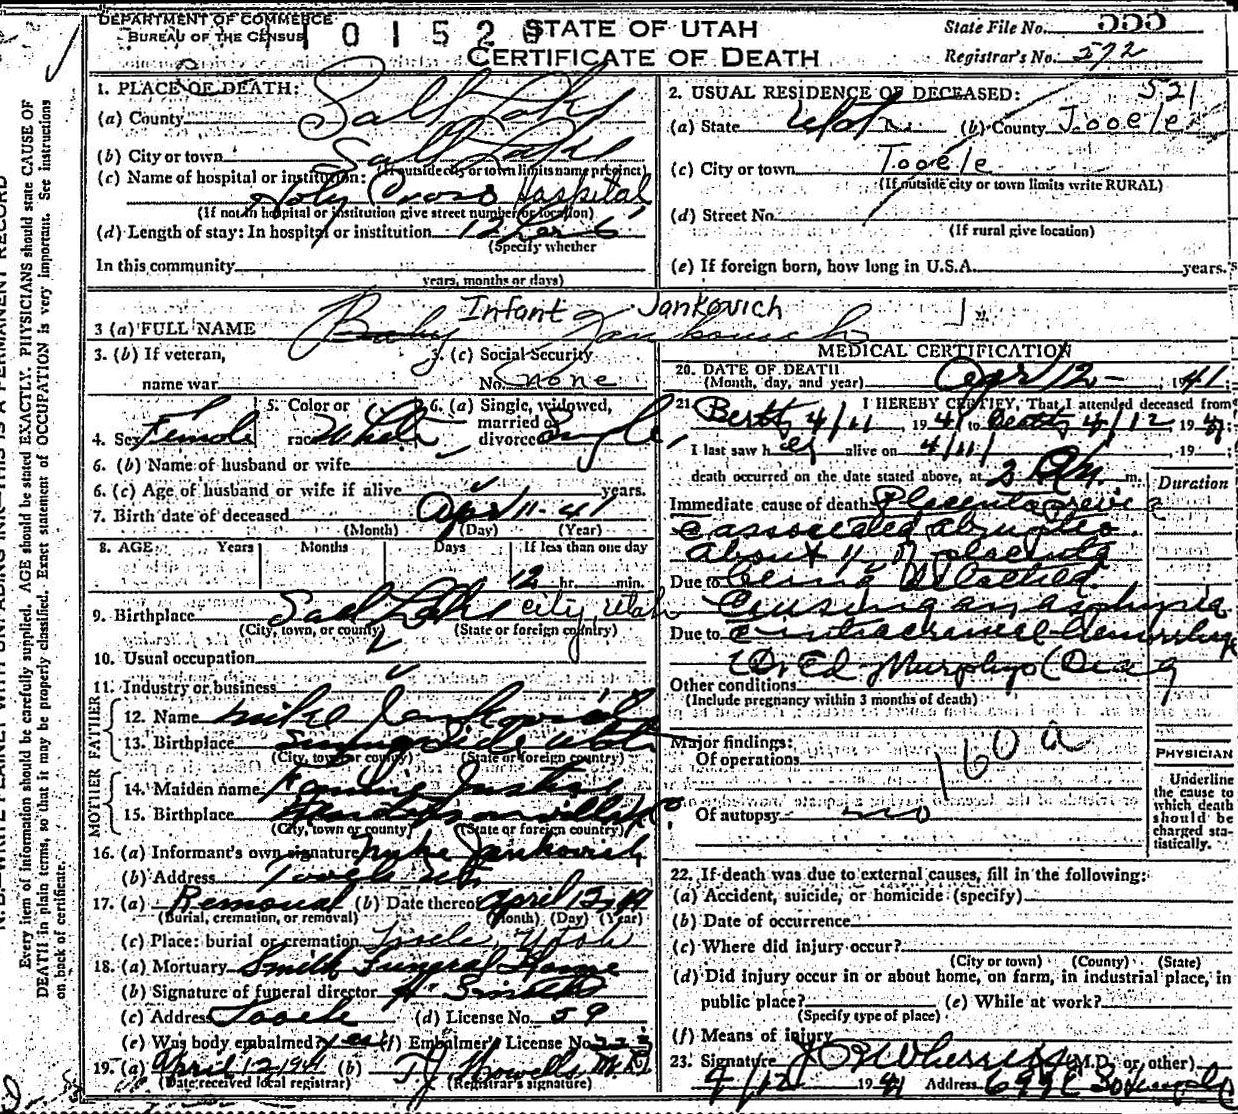 DEPARTMENT OF COMMERCE
BUREAU OF THE CENSUS
1 0 1 5 2
STATE OF UTAH
CERTIFICATE OF DEATH
State File No. 555
Registrar's No. 572
1. PLACE OF DEATH:
(a) County Salt Lake
(b) City or town Salt Lake
(If outside city or town limits name precinct)
(c) Name of hospital or institution:
Holy Cross Hospital
(If not in hospital or institution give street number or location)
(d) Length of stay: In hospital or institution 12
(Specify whether
In this community
years, months or days)
2. USUAL RESIDENCE OF DECEASED: 521
(a) State Utah (b) County Tooele
(c) City or town Tooele
(If outside city or town limits write RURAL)
(d) Street No.
(If rural give location)
(e) If foreign born, how long in U.S.A. years.
Infant Jankovich
3 (a) FULL NAME Baby Jankovich
3. (b) If veteran,
name war
3. (c) Social Security
No. none
4. Sex Female
5. Color or
race White
6. (a) Single, widowed,
married or
divorced Single
6. (b) Name of husband or wife
6. (c) Age of husband or wife if alive years.
7. Birth date of deceased Apr 11 - 41
(Month) (Day) (Year)
8. AGE: Years Months Days If less than one day
12 hr. min.
9. Birthplace Salt Lake City, Utah
(City, town, or county) (State or foreign country)
10. Usual occupation
11. Industry or business
FATHER
12. Name Mike Jankovich
13. Birthplace Sunnyside Utah
(City, town or county) (State or foreign country)
MOTHER
14. Maiden name Justice
15. Birthplace
(City, town or county) (State or foreign country)
16. (a) Informant's own signature Mike Jankovich
(b) Address Tooele Ut.
17. (a) Removal (b) Date thereof April 12, 41
(Burial, cremation, or removal) (Month) (Day) (Year)
(c) Place: burial or cremation Tooele, Utah
18. (a) Mortuary Smith Funeral Home
(b) Signature of funeral director Smith
(c) Address Tooele (d) License No. 59
(e) Was body embalmed? yes (f) Embalmer's License No.
19. (a) April 12 1941 (b) T. J. Howells M.D.
(Date received local registrar) (Registrar's signature)
MEDICAL CERTIFICATION
20. DATE OF DEATH
(Month, day, and year) Apr 12 - 1941
21. I HEREBY CERTIFY, That I attended deceased from
Birth 4/11 1941 to Death 4/12 1941;
I last saw her alive on 4/11/ , 19 ;
death occurred on the date stated above, at 3 A.m. m.
Duration
Immediate cause of death Placenta Previa
c associated abruptio
About of placenta
Due to being detached
Causing asphyxia
Due to c intracranial hemorrhage
Dr Ed Murphy
Other conditions
(Include pregnancy within 3 months of death)
Major findings:
Of operations
160 a
Of autopsy no
PHYSICIAN
Underline
the cause to
which death
should be
charged sta-
tistically.
22. If death was due to external causes, fill in the following:
(a) Accident, suicide, or homicide (specify)
(b) Date of occurrence
(c) Where did injury occur?
(City or town) (County) (State)
(d) Did injury occur in or about home, on farm, in industrial place, in
public place? (e) While at work?
(Specify type of place)
(f) Means of injury
23. Signature (M.D. or other)
4/12 1941 Address 699 E
Every item of information should be carefully supplied. AGE should be stated EXACTLY. PHYSICIANS should state CAUSE OF
DEATH in plain terms, so that it may be properly classified. Exact statement of OCCUPATION is very important. See instructions
on back of certificate.